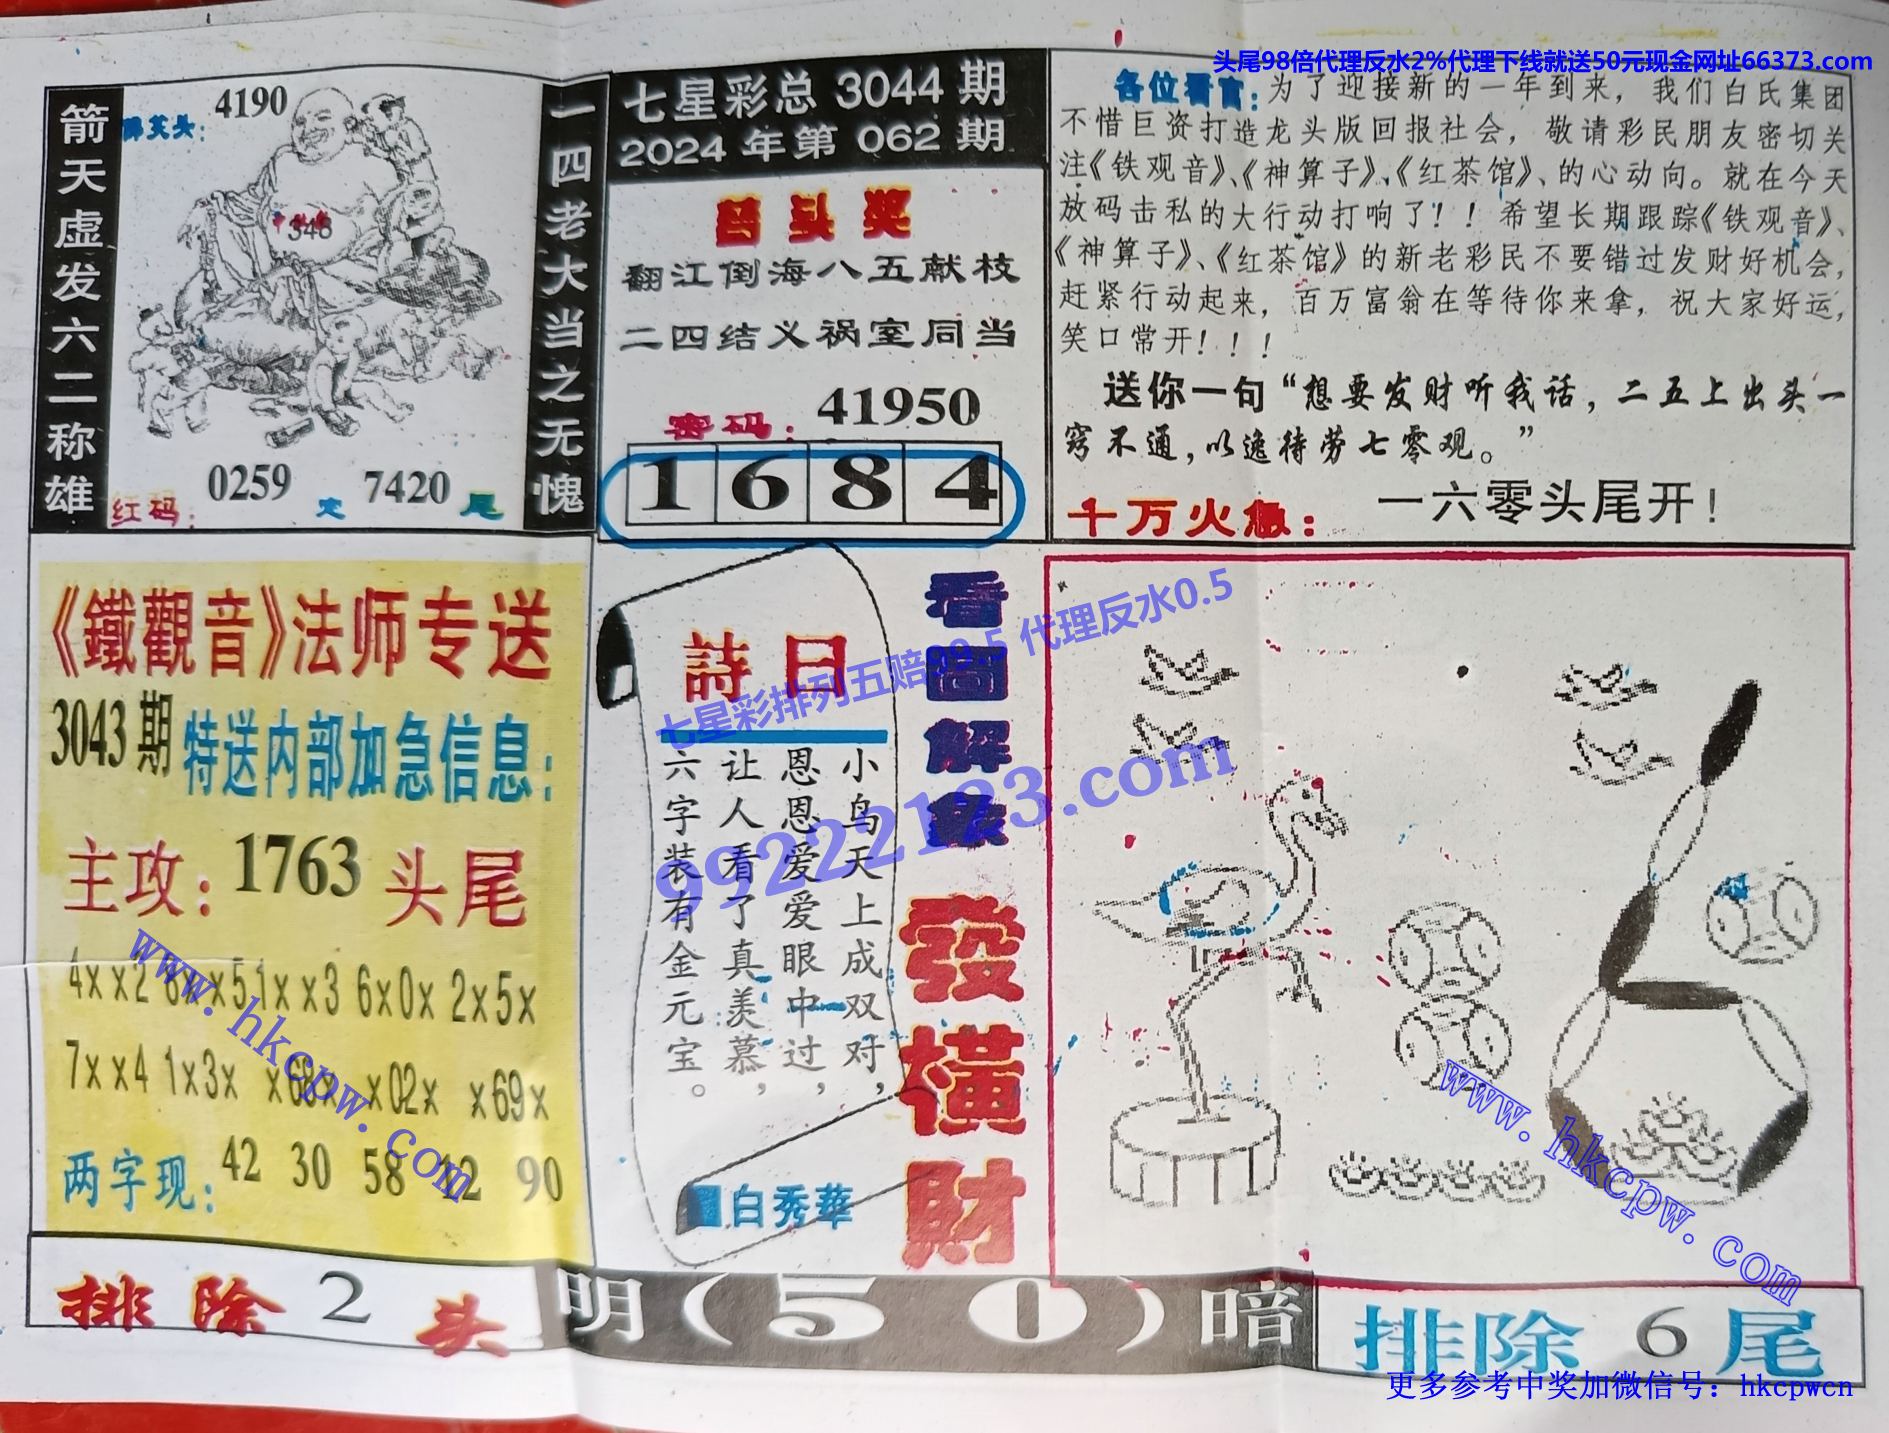 头尾98倍代理反水2%代理下线就送50元现金网址66373.com
箭天虚发六二称雄
4190
346
红码:
0259
定
7420
尾
一四老大当之无愧
七星彩总 3044 期
2024 年第 062 期
翻江倒海八五献枝
二四结义祸室同当
密码:
41950
1 6 8 4
各位看官:为了迎接新的一年到来,我们白氏集团
不惜巨资打造龙头版回报社会,敬请彩民朋友密切关
注《铁观音》、《神算子》、《红茶馆》、的心动向。就在今天
放码击私的大行动打响了!!希望长期跟踪《铁观音》、
《神算子》、《红茶馆》的新老彩民不要错过发财好机会,
赶紧行动起来,百万富翁在等待你来拿,祝大家好运,
笑口常开!!!
送你一句“想要发财听我话,二五上出头一
窍不通,以逸待劳七零观。”
十万火急:
一六零头尾开!
《鐵觀音》法师专送
3043期
特送内部加急信息:
主攻:1763头尾
4xx2 8xx5 1xx3 6x0x 2x5x
7xx4 1x3x x68x x02x x69x
两字现:
42 30 58 12 90
詩曰
小鸟天上成双对,
恩恩爱爱眼中过,
让人看了真羡慕,
六字装有金元宝。
白秀華
看圖解象
發橫財
七星彩排列五赔99.5 代理反水0.5
99222123.com
www.hkcpw.com
www.hkcpw.com
排除2头
明(50)暗
排除6尾
更多参考中奖加微信号:hkcpwcn